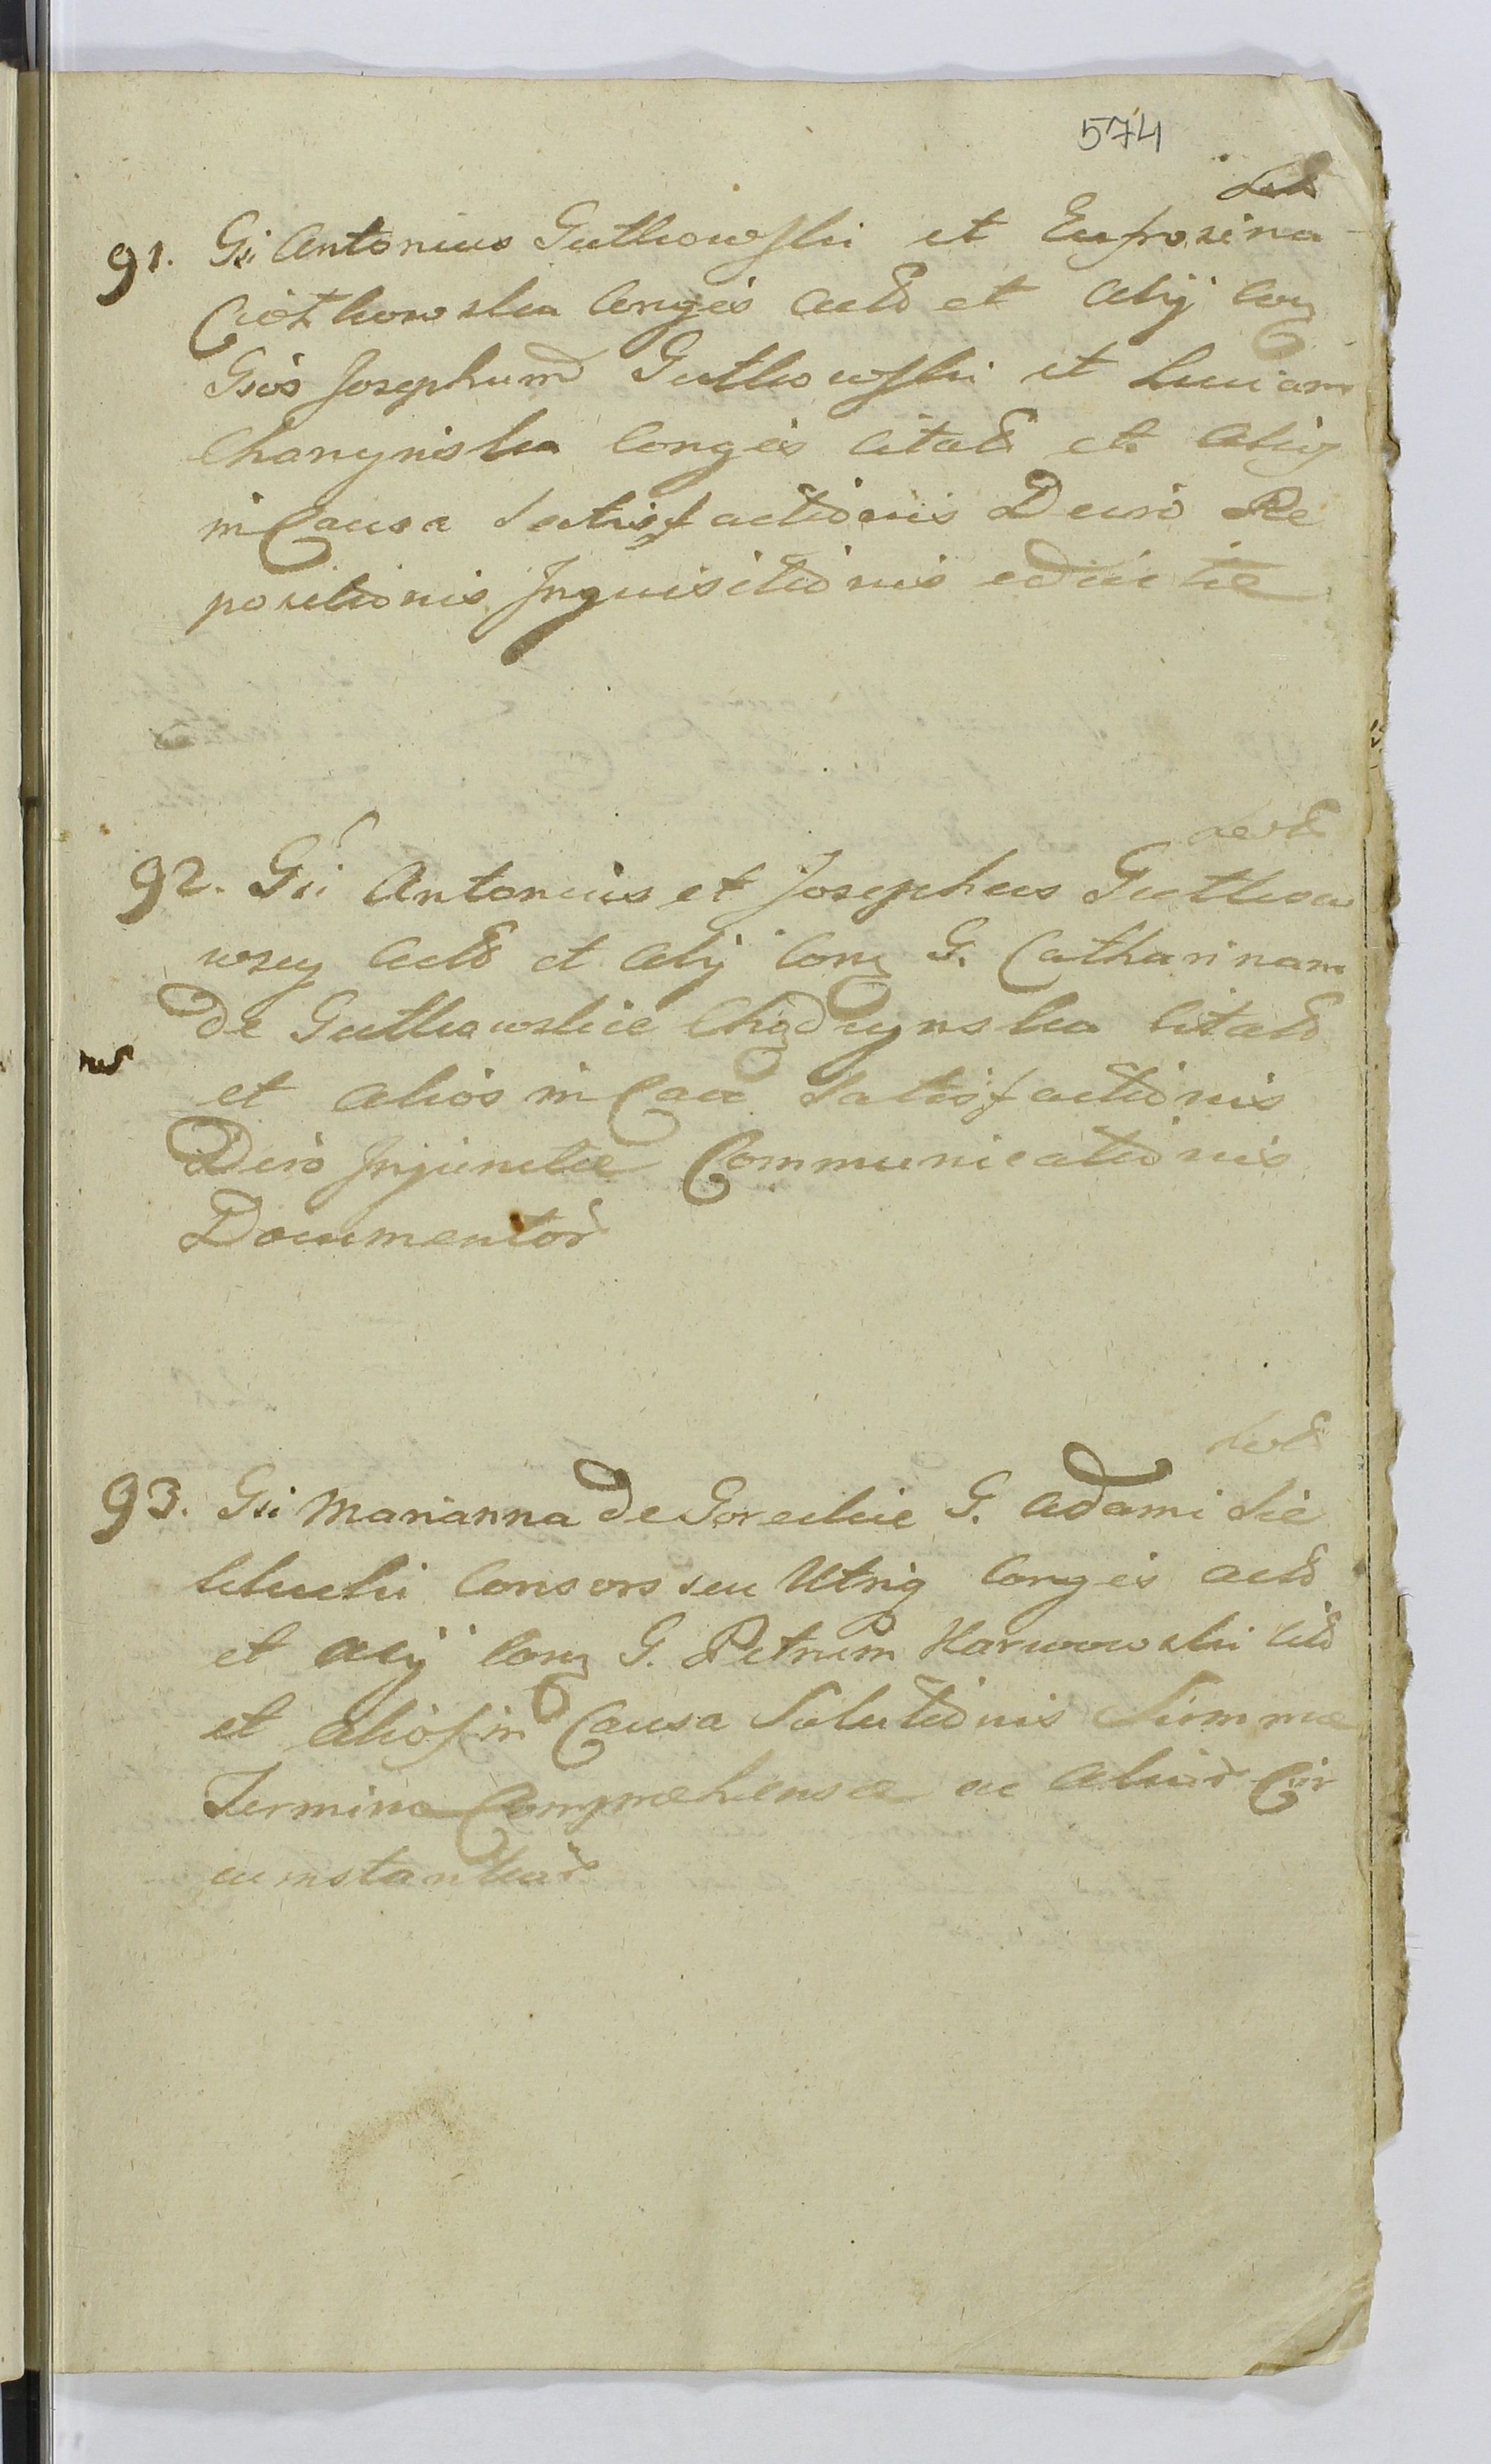 574
91. Gsi Antonius Gutkowski et Eufrosina
Ciotkowska Conges Act et Alij Con
Gsos Josephum Gutkowski et Luciam
Chonynska Conges Citat et Alios
in Causa Satisfactionis Decreto Re
positionis Inquisitionis eductae
92. Gsi Antonius et Josephus Gutkow
wscy Act et Alij Con G. Catharinam
de Gutkowskie Chodzynska Citat
et Alios in Cau Satisfactionis
Decro Injunctae Communicationis
Documentor
93. Gsi Marianna de Goreckie G. Adami Sie
klucki Consors seu Utriq Conges Act
et Alij Con G. Petrum Karwowski Cit
et Alios in Causa Solutionis Summae
Termino Comprehensae ac Aliar Cir
cumstantiar